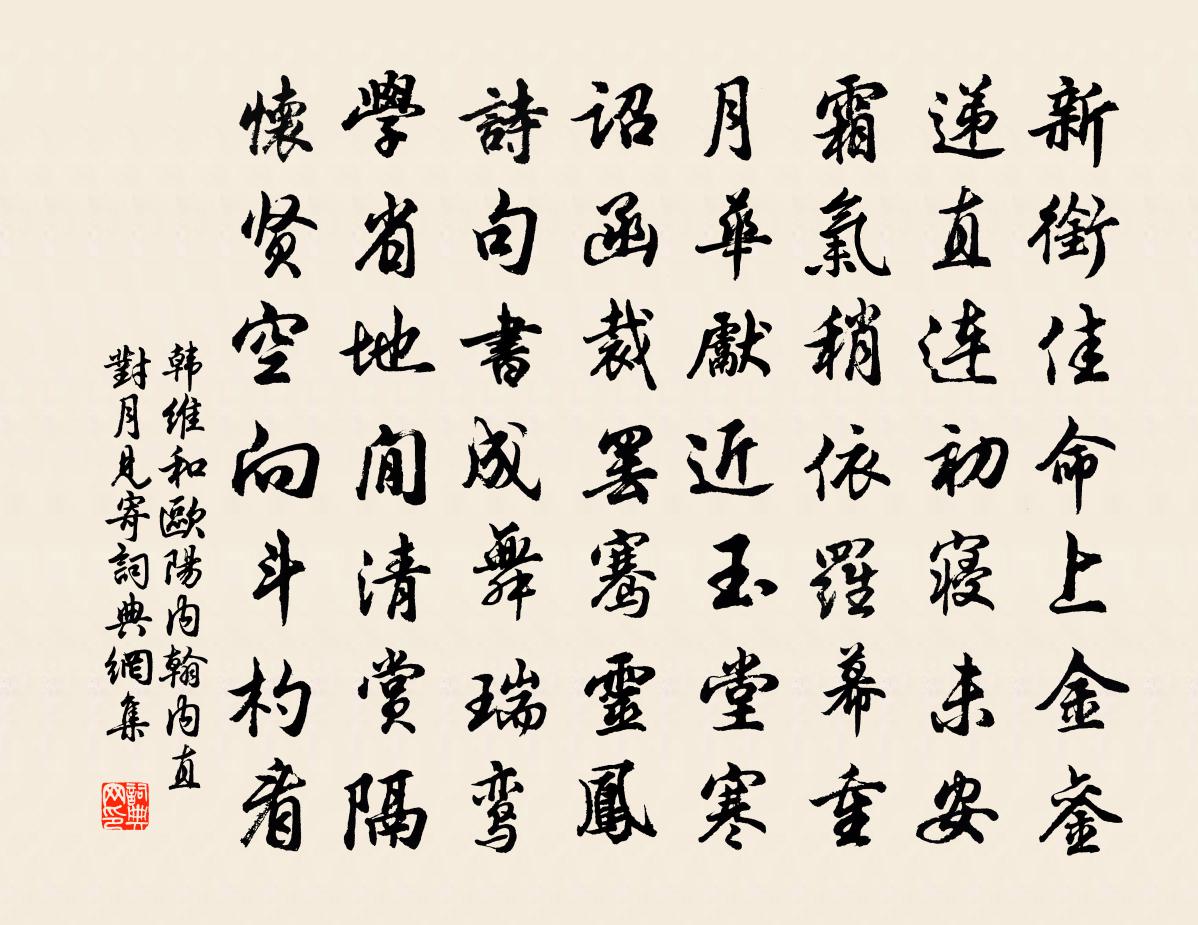 新銜佳命上金銮
递直连初寝未安
霜氣稍依羅幕重
月華獻近玉堂寒
诏函裁罢骞靈鳳
詩句書成舞瑞鸾
學省地闲清赏隔
懷贤空向斗杓看
韩维和歐陽内翰内直
對月見寄詞典網集
詞典网印